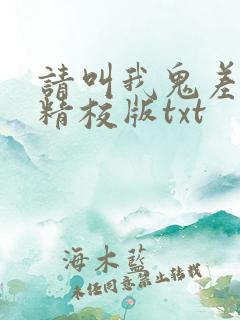 請叫我鬼差
精校版txt
海木藍
未任同意禁止转载